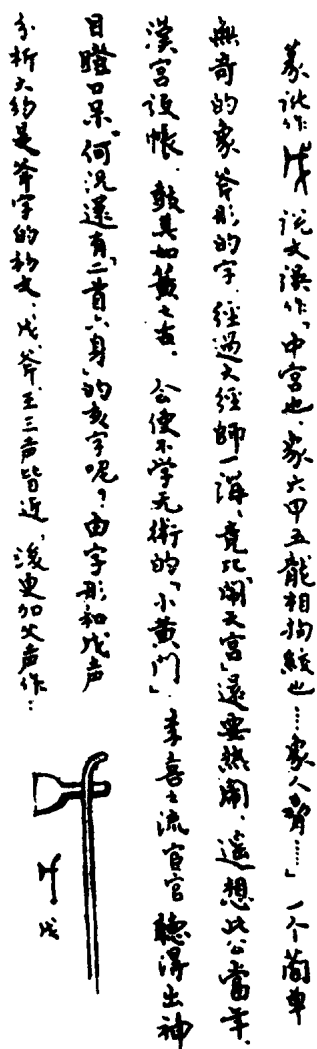 篆讹作戊说文误作「中宫也，象六甲五龍相拘絞也……象人脅……」一个简单
無奇的象斧形的字，經過大經師一講，竟比「闹天宫」還要熱闹，遥想此公當年，
漢宫设帐，鼓其如簧之舌，公使不学无術的「小黄门」李喜之流宦官聽得出神
目瞪口呆，何況還有「二首六身」的亥字呢？由字形和戊声
分析大約是斧字的初文，戊、斧、王三声皆近，後更加父声作：
戊